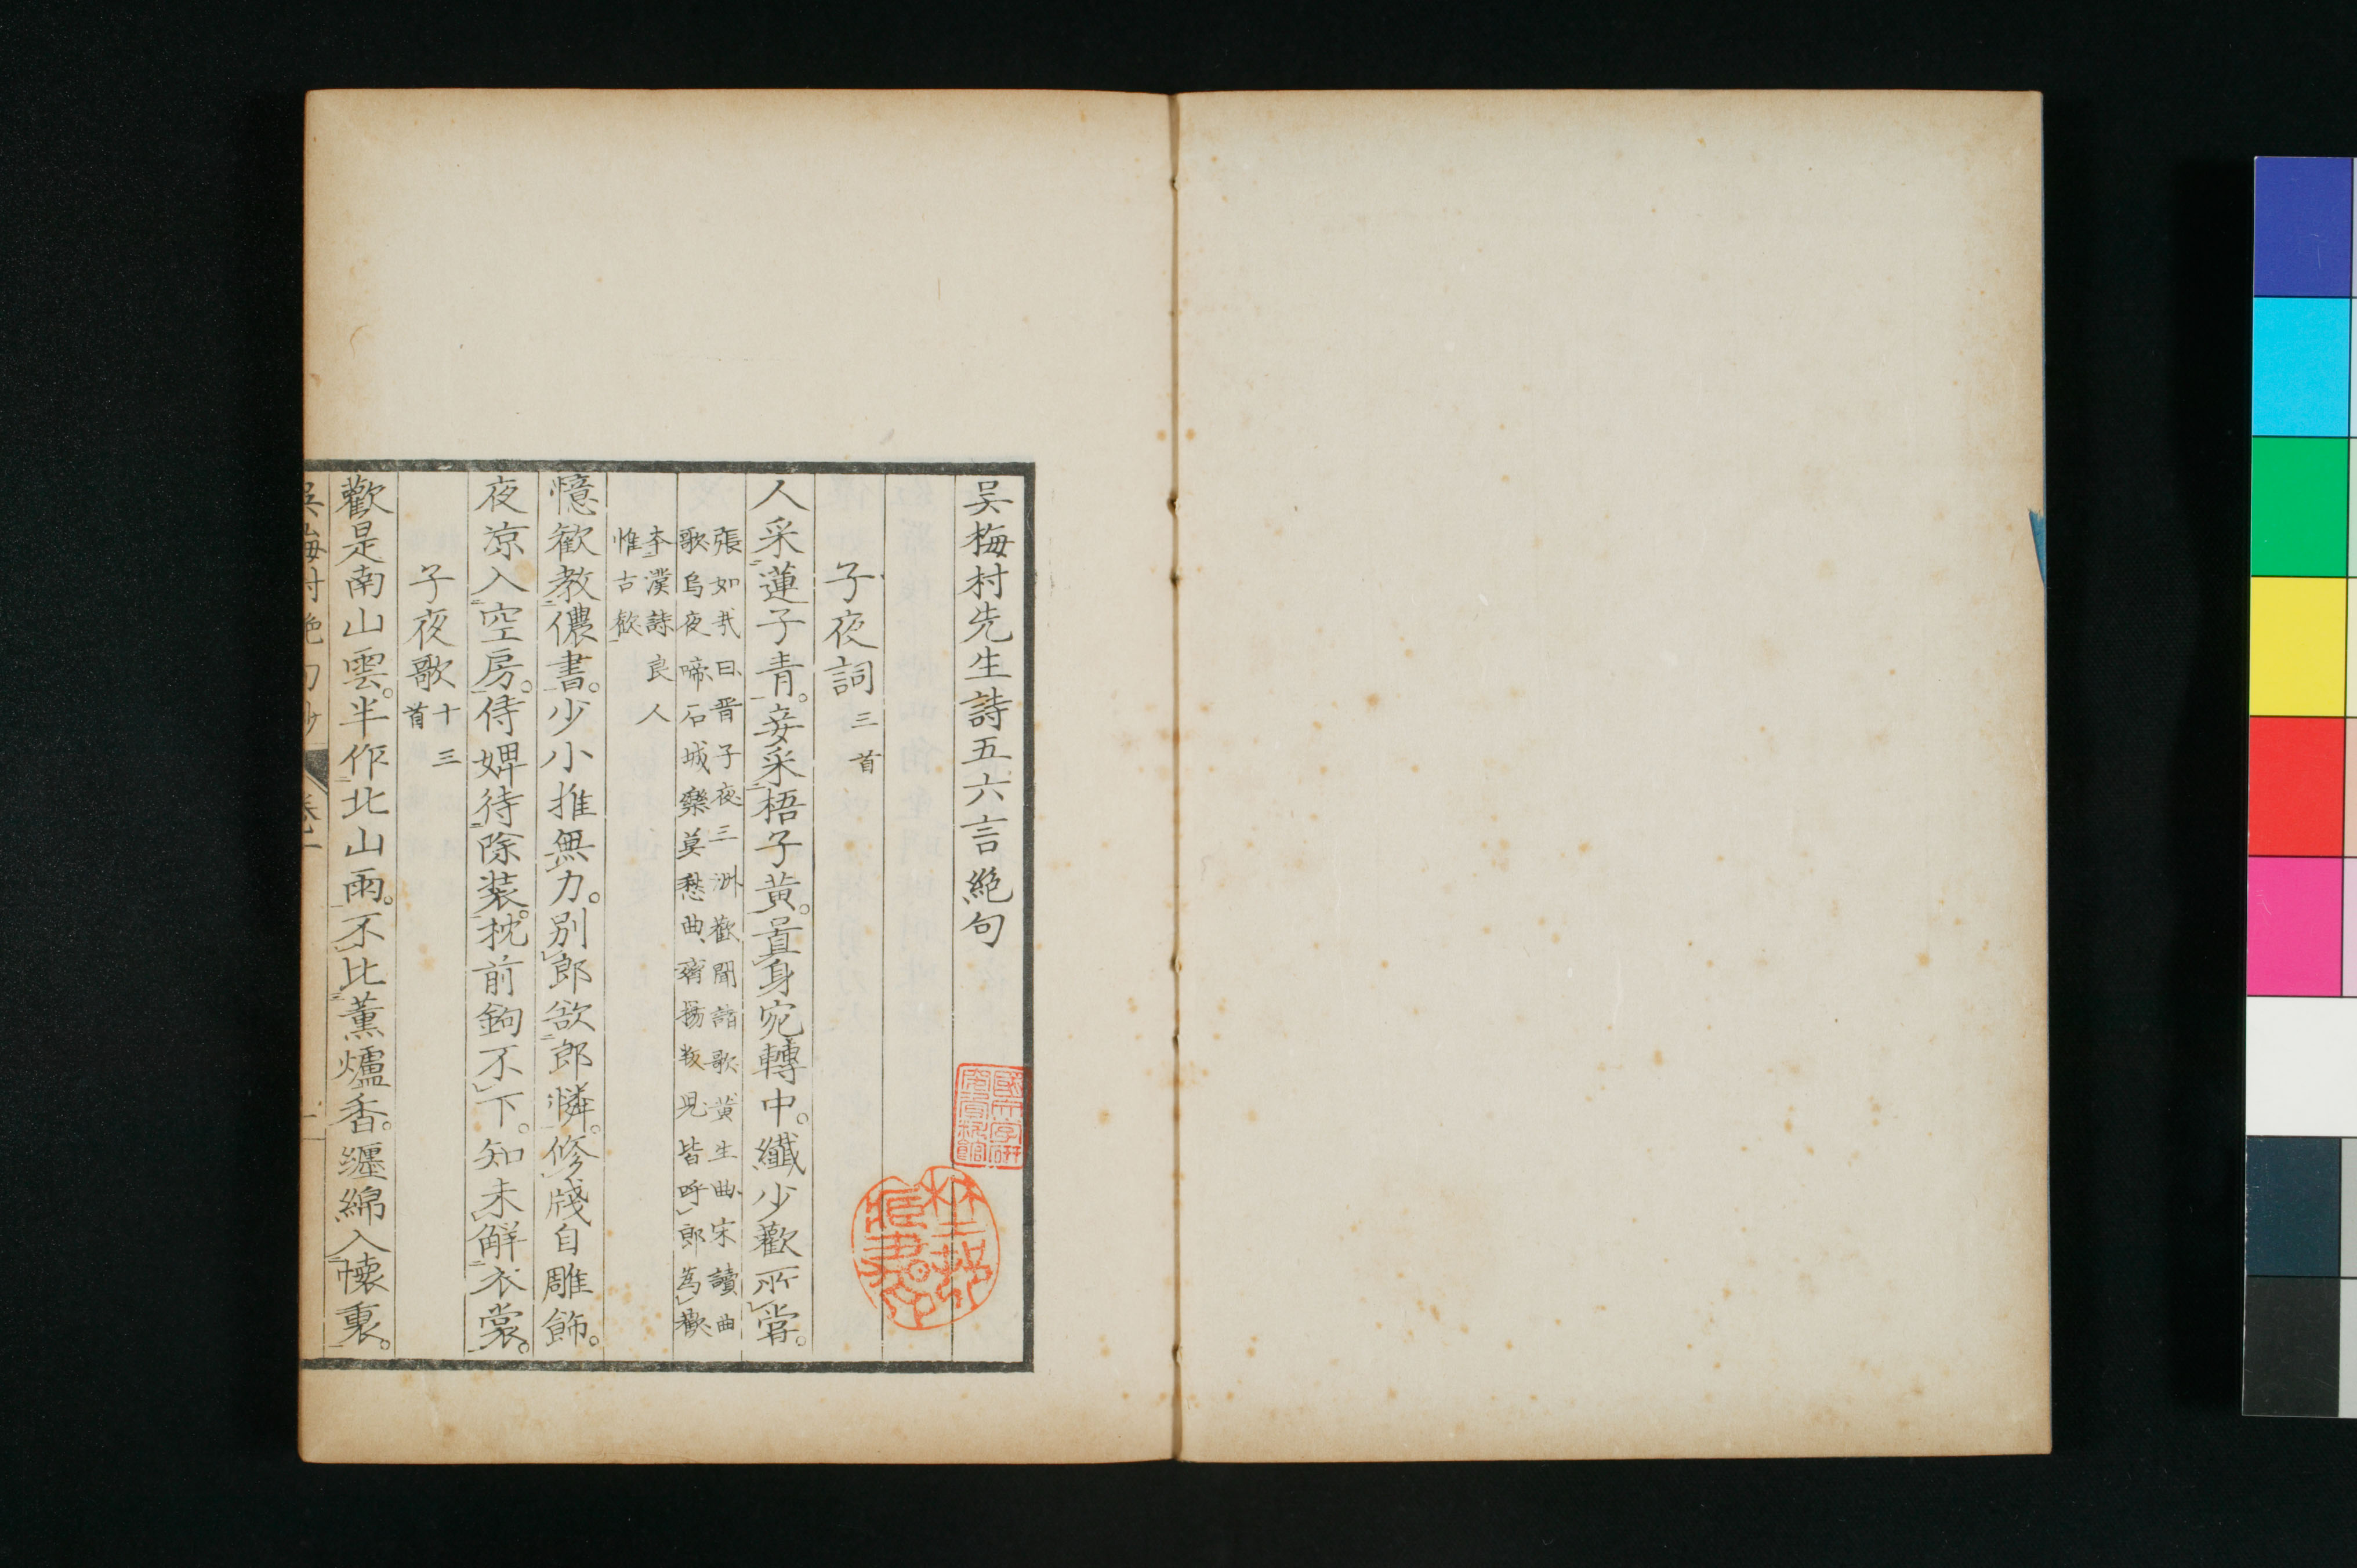 吴梅村先生詩五六言絶句
子夜詞三首
人采蓮子青。妾采梧子黄。置身宛轉中。纖少歡所嘗。
張如哉曰晋子夜三洲歡聞諸歌黄生曲宋讀曲
歌烏夜啼石城樂莫愁曲齊揚叛児皆呼郎為歡
李濮詩良人
惟古歓
憶歓教儂書。少小推無力。別郎欲郎憐。修牋自雕飾。
夜凉入空房。侍婢待除装。枕前鉤不下。知未觧衣裳。
子夜歌十三首
歡是南山雲。半作北山雨。不比薫爐香。纒綿入懐裏。